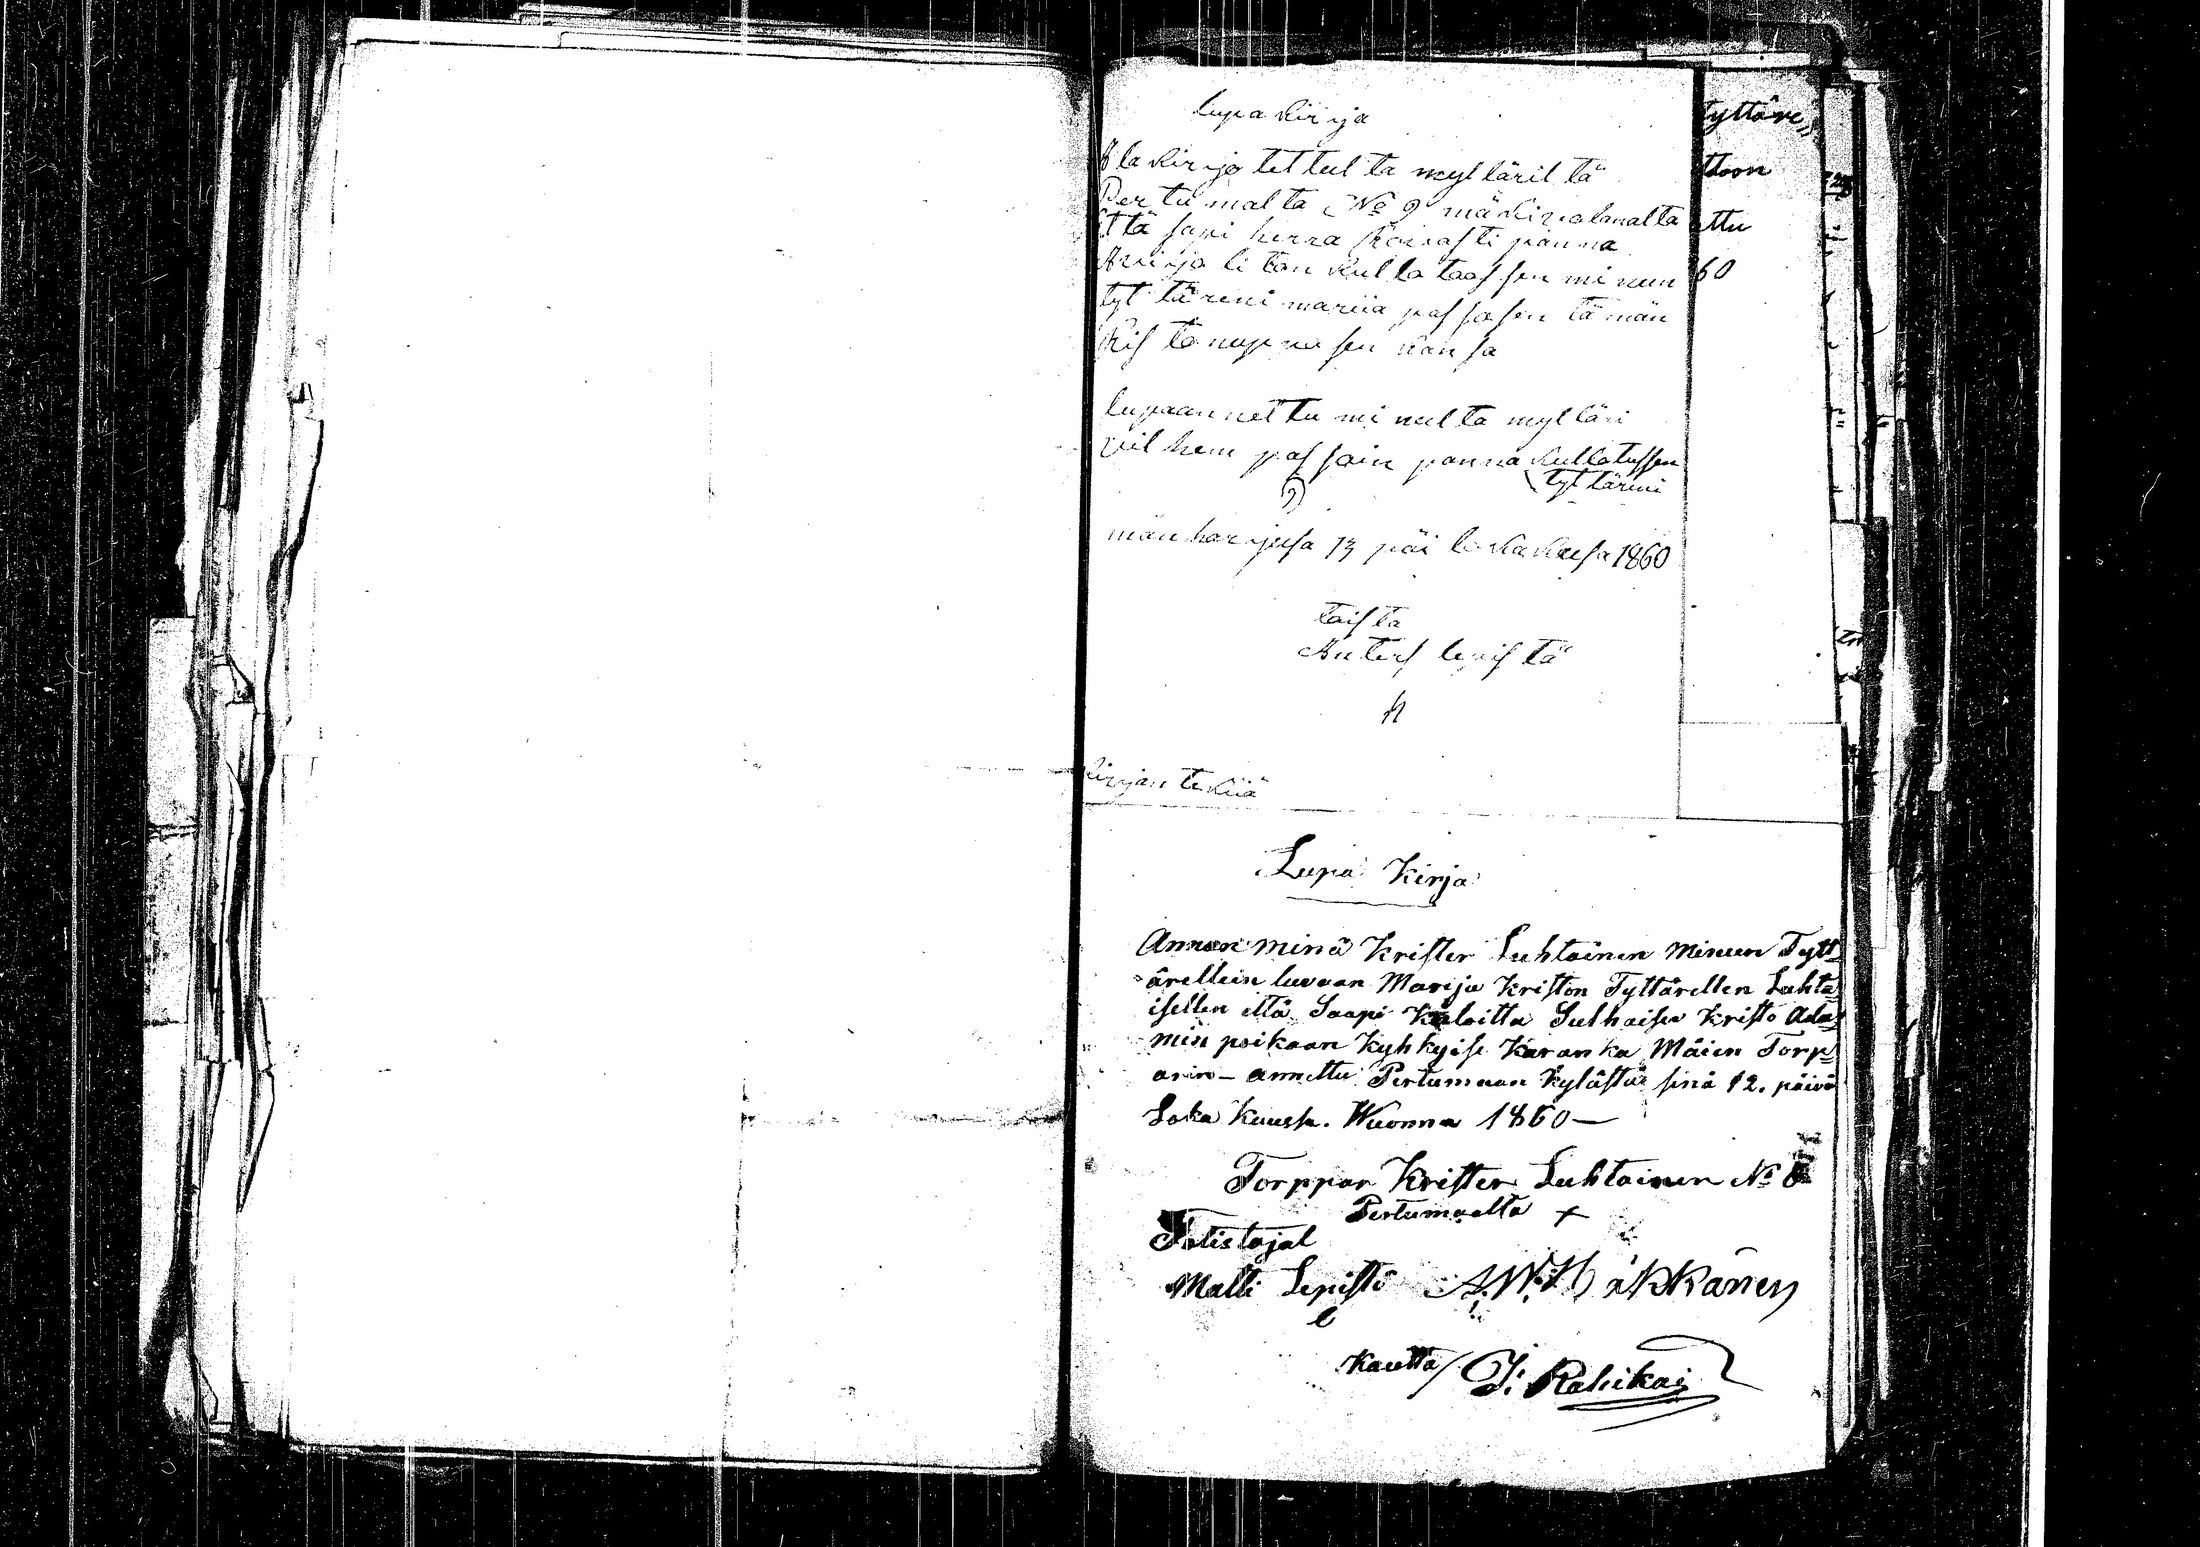 lupa kirija
Ala kirijo tet tul ta myl läril tä
Per tu mal ta No 9
Että sapi herra panna
Avi ijo li ton kul la taas sen mi nun
tyt tä reni mariia pas sosen tä män
kans sa
lupaan net tu mi nul ta myl läri
vil hem pas soin panna kullatussen
tyt täreni
män har ijusa 13 päi lo ka kusa 1860
tois ta
Anters lepis tä
kirijan tekiiä
tyttäre
ttoon
ttu
60
Lupa Kirja
Annan minä Krister Luhtainen minun Tytt
ärellein luvaan Marija Kriston Tyttärellen Luhta
isellen että Saapi Kuloitta Sulhaisen Kristo Ada
min poikaan Kyhkyise Karanka Mäien Torp
arin - annettu Pertumaan Kylästä sinä 12. päivä
Loka Kuussa. Wuonna 1860 —
Torppar Krister Luhtainen No 8
Pertumaalta +
Totistajat
Matti Lepistö A. W. Häkkänen
Kautta / J: Rahikai